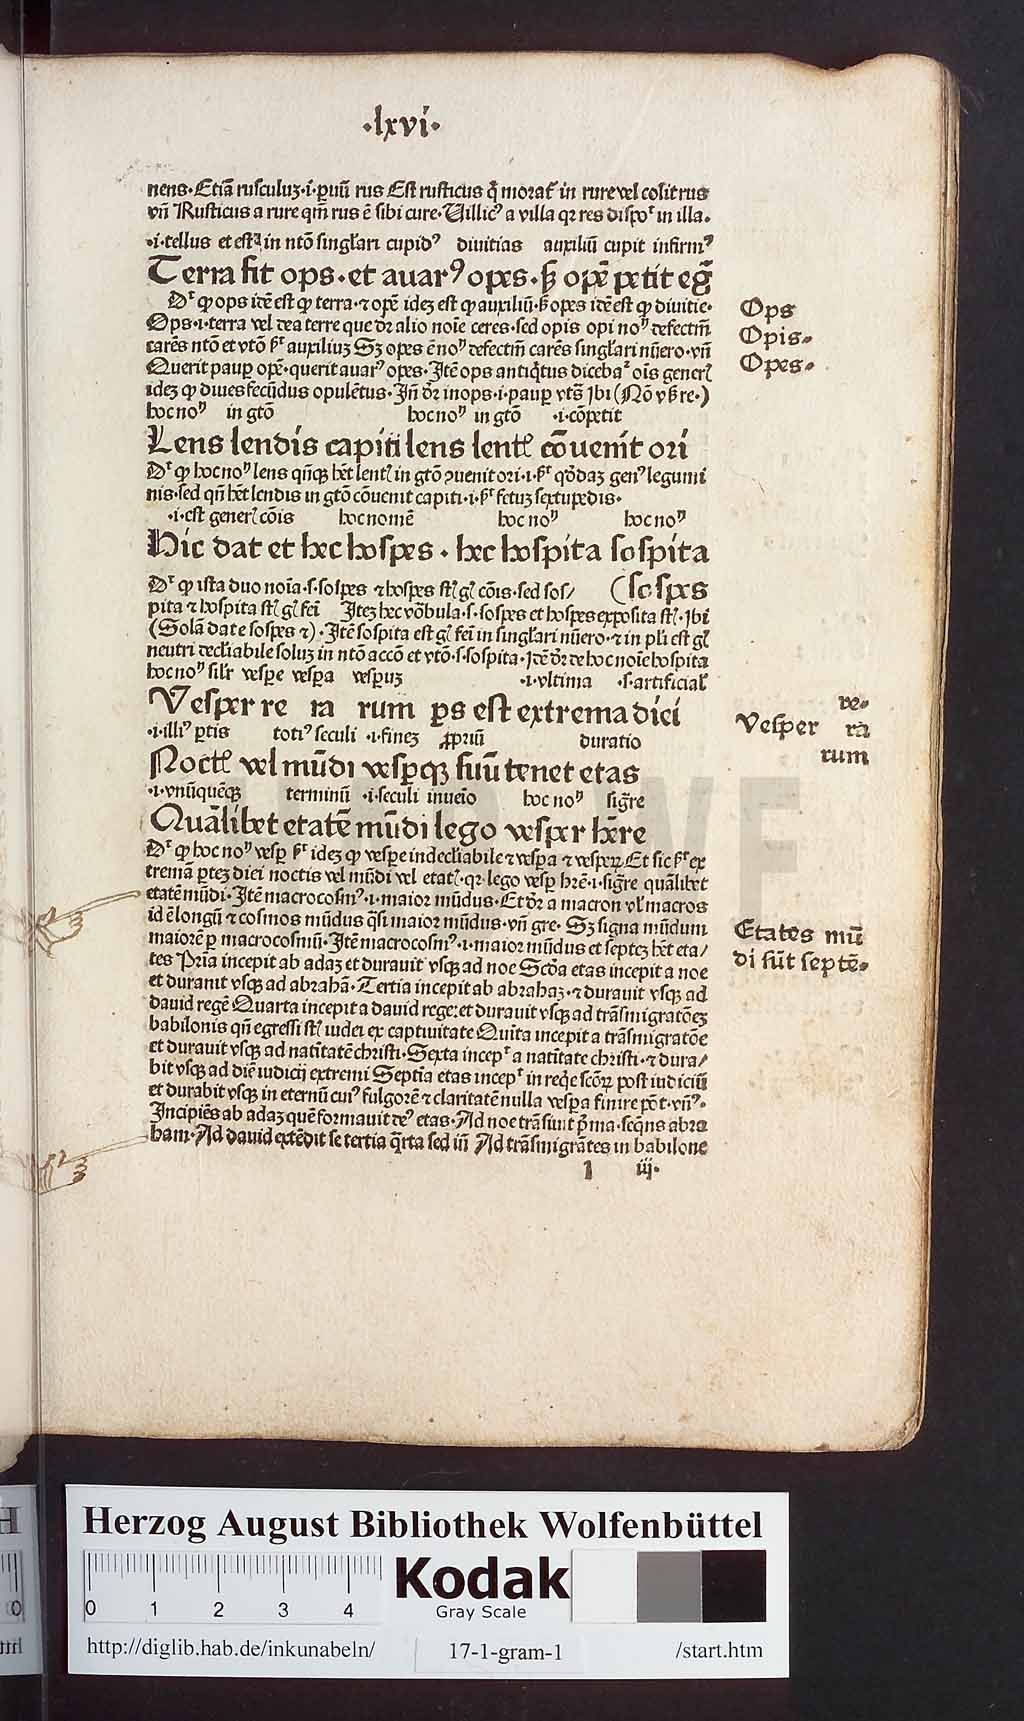 ·lxvi·
nens·Etiā rusculuꝫ·i·ꝑuū rus Est rusticus q̄ morat᷑ in rure vel colit rus
vn̄ Rusticus a rure qm̄ rus ē sibi cure·Uillicꝰ a villa qꝛ res dispoᵗ in illa·
·i·tellus et est in ntō singl'ari cupidꝰ divitias auxiliū cupit infirmꝰ
Terra fit ops·et auarꝰ opes·ß opē petit eg̃
Dᵗ ꝙ ops idē est ꝙ terra·⁊ opē ideꝫ est ꝙ auxiliū·ß opes idē est ꝙ divitie·
Ops·i·terra vel dea terre que dꝛ alio noīe ceres·sed opis opi noⁿ defectīū
carēs ntō et vtō ßᵗ auxiliuꝫ Sꝫ opes ē noⁿ defectīū carēs singl'ari nūero·vn̄
Querit pauꝑ opē·querit auarꝰ opes·Itē ops antiq̇tus diceba᷑ oīs generꝭ
ideꝫ ꝙ diues fecūdus opulētus·Jn̄ dꝛ inops·i·pauꝑ vtꝭ Ibi (Nō vßre·)
hoc noⁿ in gtō hoc noⁿ in gtō ·i·cōpetit
Lens lendis capiti lens lentꝭ cōuenit ori
Dᵗ ꝙ hoc noⁿ lens qn̄qꝫ hēt lentꝭ in gtō ꝯuenit ori·i·ßᵗ qōdaꝫ genꝰ legumi
nis·sed qn̄ hēt lendis in gtō cōuenit capiti·i·ßᵗ fetuꝫ sextupedis·
·i·est generꝭ cōis hoc nomē hoc noⁿ hoc noⁿ
Hic dat et hec hospes·hec hospita sospita
(sospes
Dᵗ ꝙ ista duo noīa·s·sospes ⁊ hospes st̄ gꝭ cōis·sed sos/
pita ⁊ hospita st̄ gꝭ feī Iteꝫ hec vōbula·s·sospes et hospes exposita st̄·Ibi
(Solā da te sospes ⁊)·Itē sospita est gꝭ feī in singl'ari nūero·⁊ in pl'i est gꝭ
neutri declīabile soluꝫ in ntō accō et vtō·s·sospita·Idē dꝛ de hoc noīe hospita
hoc noⁿ sil'r vespe vespa vespuꝫ ·i·vltima ·s·artificial'
Vesper re ra rum ꝑs est extrema diei
·i·illiꝰ ꝑtis totiꝰ seculi ·i·fineꝫ ꝓpriū duratio
Noctꝭ vel mūdi vesꝑqꝫ suū tenet etas
·i·vnūquēqꝫ terminū ·i·seculi inueīo hoc noⁿ sig̃re
Quālibet etatē mūdi lego vesper hr̄e
Dᵗ ꝙ hoc noⁿ vesꝑ ßᵗ ideꝫ ꝙ vesꝑe indecl'iabile ⁊ vesꝑa ⁊ vesꝑꝝ Et sic ßᵗ ex
tremā ꝑteꝫ diei noctis vel mūdi vel etatꝭ·qꝛ lego vesꝑ hr̄e·i·sig̃re quālibet
etatē mūdi·Itē macrocosmꝰ·i·maior mūdus·Et dꝛ a macron vl' macros
id ē longū ⁊ cosmos mūdus q̄si maior mūdus·vn̄ gre·Sꝫ signa mūdum
maiorē ꝑ macrocosmū·Itē macrocosmꝰ·i·maior mūdus et septeꝫ hēt eta/
tes Pria incepit ab adaꝫ et durauit vsqꝫ ad noe Scd̄a etas incepit a noe
et durauit vsqꝫ ad abrahā·Tertia incepit ab abrahaꝫ·⁊ durauit vsqꝫ ad
dauid regē Quarta incepit a dauid rege:et durauit vsqꝫ ad trāsmigratōeꝫ
babilonis qn̄ egressi st̄ iudei ex captiuitate Quīta incepit a trāsmigratōe
et durauit vsqꝫ ad natītatē christi·Sexta incepᵗ a natītate christi·⁊ dura/
bit vsqꝫ ad diē iudicij extremi Septīa etas incepᵗ in reqͥe scōꝝ post iudiciū
et durabit vsqꝫ in eternū cuiꝰ fulgorē ⁊ claritatē nulla vesꝑa finire pōt·vn̄ꝰ·
Incipiēs ab adaꝫ quē formauit deꝰ etas·Ad noe trāsiuit ṗma·seqn̄s abra
ham·Ad dauid extēdit se tertia q̄rta sed iī Ad trāsmigrātes in babilone
l iij·
Ops
Opis·
Opes·
re·
Vesper ra
rum
Etates mū
di sūt septē·
Herzog August Bibliothek Wolfenbüttel
0 1 2 3 4
Kodak
Gray Scale
http://diglib.hab.de/inkunabeln/
17-1-gram-1
/start.htm